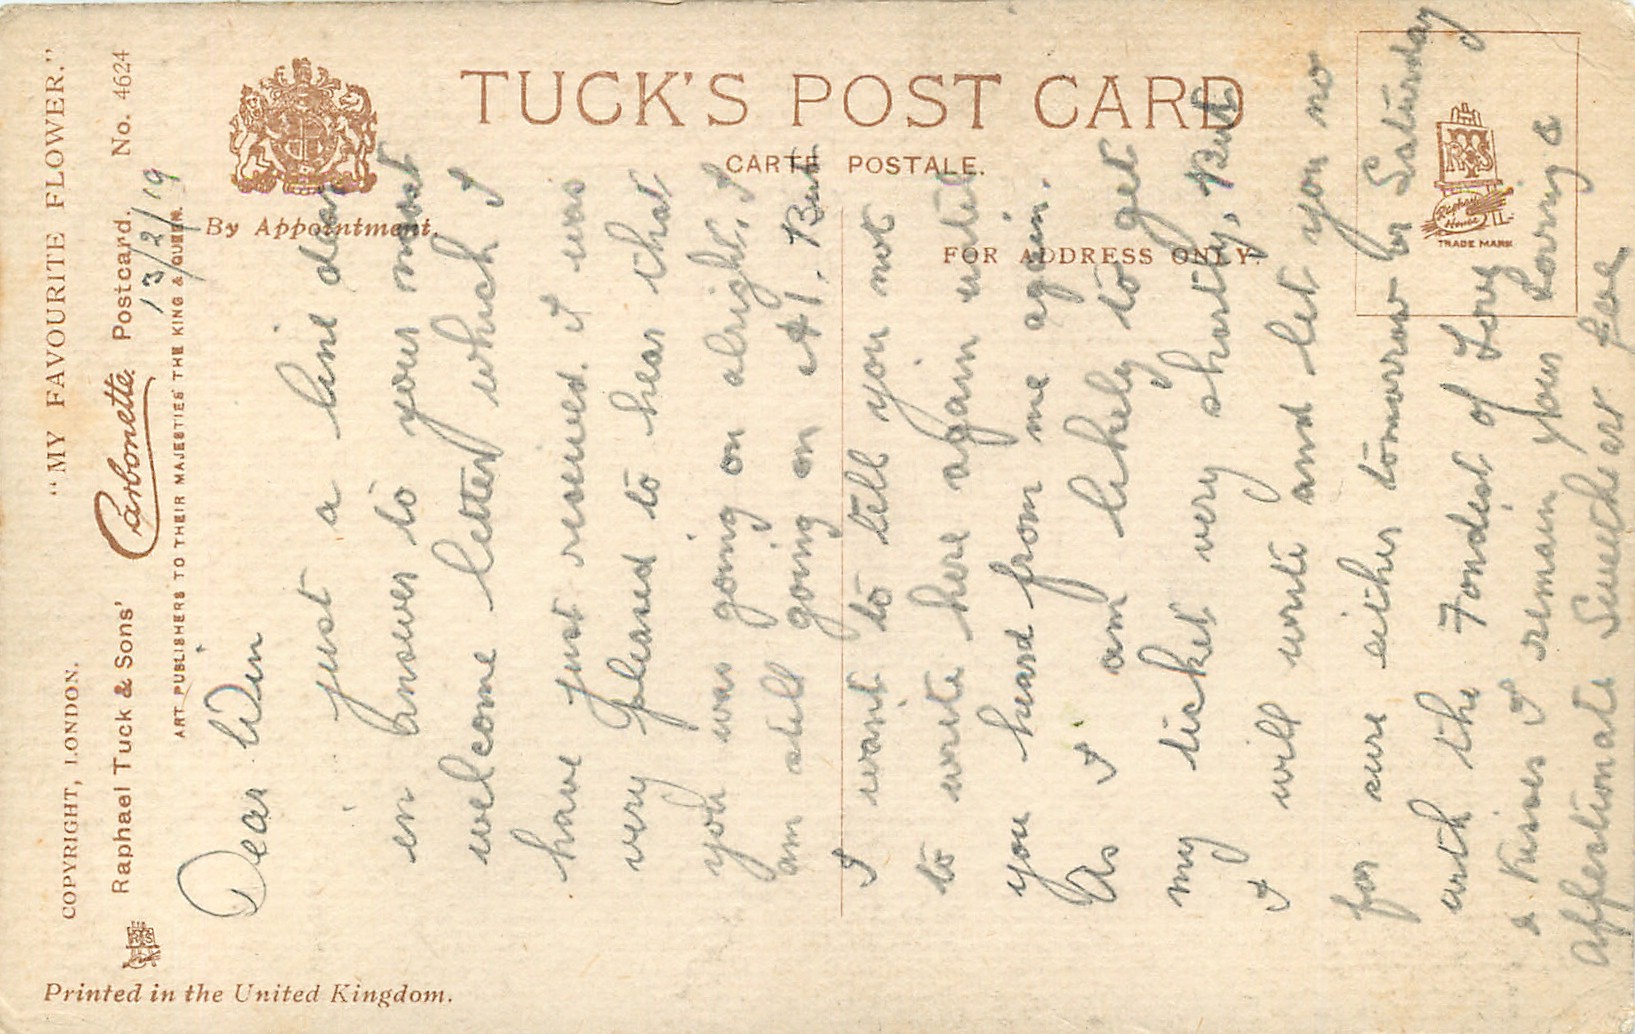 "MY FAVOURITE FLOWER."
COPYRIGHT, LONDON.
Raphael Tuck & Sons' Carbonette Postcard. No. 4624
ART PUBLISHERS TO THEIR MAJESTIES THE KING & QUEEN.
By Appointment.
TUCK'S POST CARD
CARTE POSTALE.
FOR ADDRESS ONLY.
RTS
Raphael
House
TRADE MARK
Printed in the United Kingdom.
13/2/19
Dear Win
just a line dear
en answer to your most
welcome letter which I
have just resieved. I was
very pleased to hear that
you was going on alright, I
am still going on A1. But
I want to tell you not
to write here again untel
you heard from me again.
As I am likely to get
my ticket very shortly, But
I will write and let you no
for sure either tomorrow or Saturday
with the Fondest of Love
& Kisses I remain your Loving &
Affectionate Sweetheart